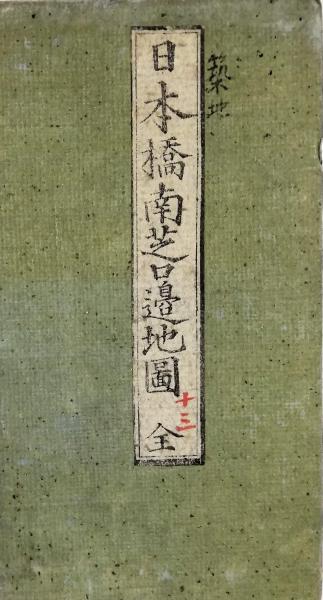 築地
日本橋南芝口邊地圖 全
十三